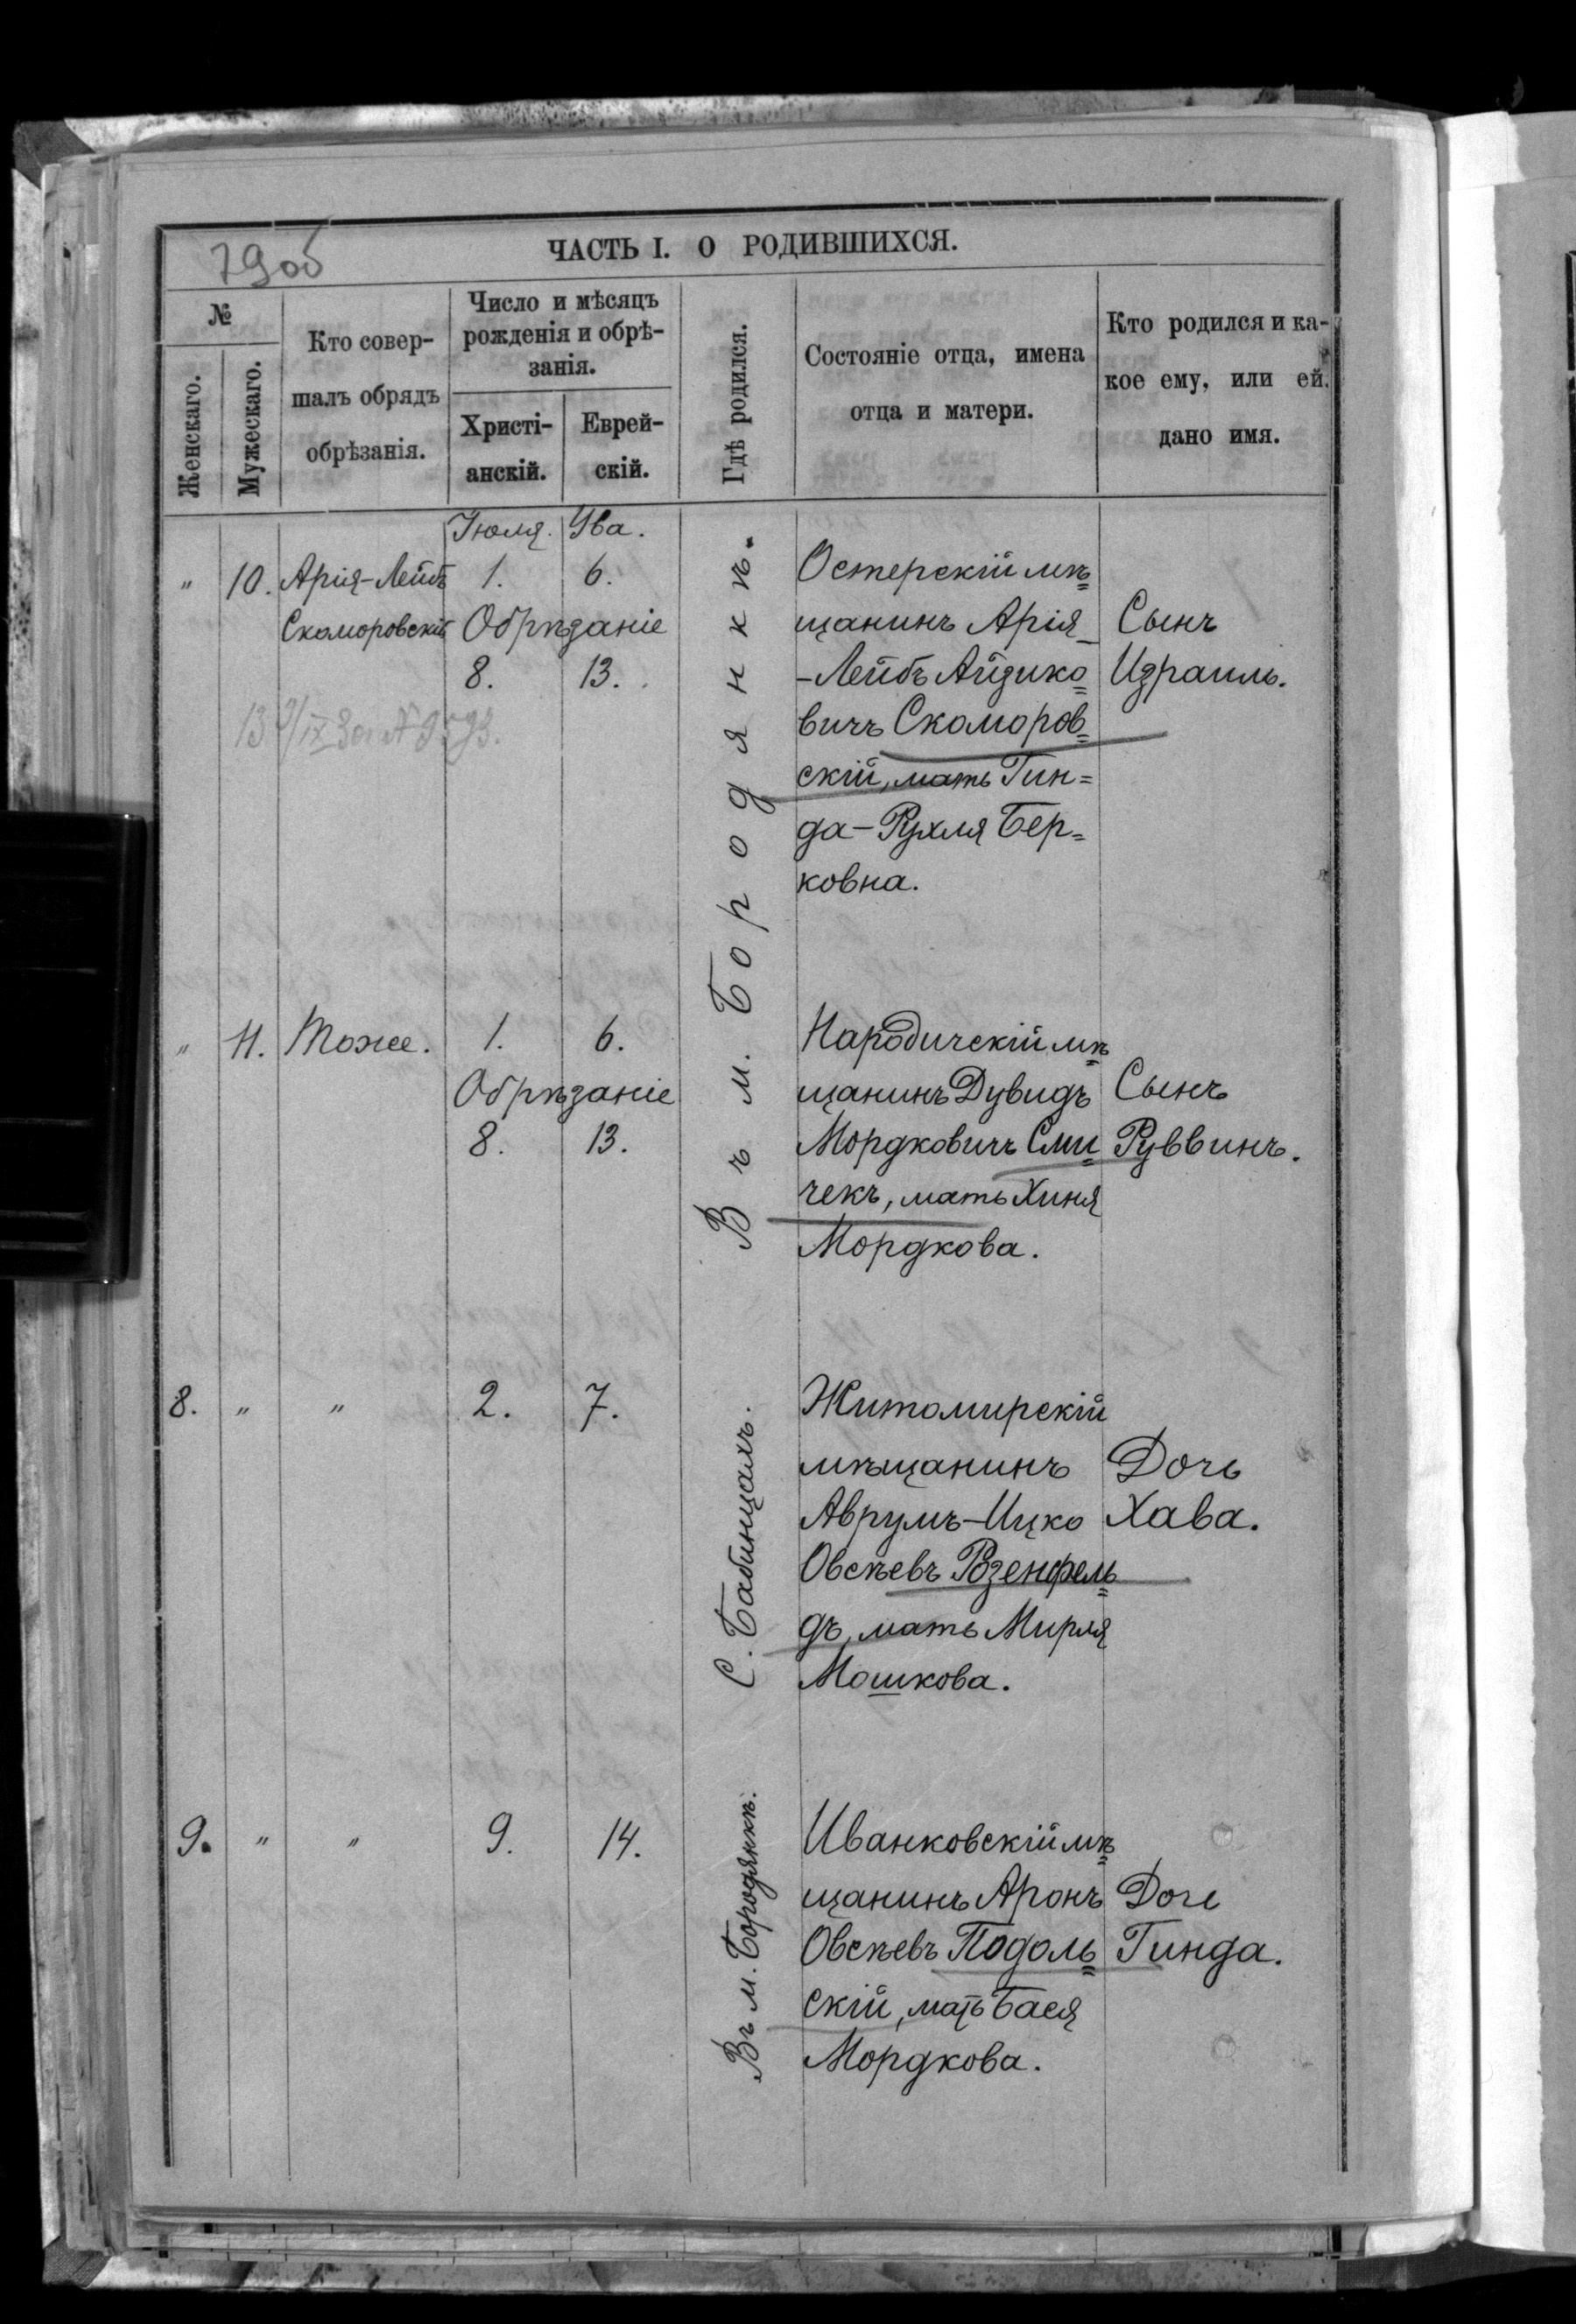 79об
ЧАСТЬ I. О РОДИВШИХСЯ.
№
Женскаго.
Мужескаго.
Кто совер-
шалъ обрядъ
обрѣзанія.
Число и мѣсяцъ
рожденія и обрѣ-
занія.
Христі-
анскій.
Еврей-
скій.
Гдѣ родился.
Состояніе отца, имена
отца и матери.
Кто родился и ка-
кое ему, или ей
дано имя.
Іюля. Ува.
" 10. Арія-Лейбъ 1. 6.
Скоморовскій Обрѣзаніе
8. 13.
Въ м. Бородянкѣ.
Остерскій мѣ=
щанинъ Арія-
-Лейбъ Айзико=
вичъ Скоморов=
скій, мать Гин=
да-Рухля Бер=
ковна.
Сынъ
Израиль.
" 11. Тоже. 1. 6.
Обрѣзаніе
8. 13.
Народичскій мѣ=
щанинъ Дувидъ
Мордковичъ Сми=
чекъ, мать Хиня
Мордкова.
Сынъ
Руввинъ.
8. " " 2. 7.
С. Бабинцахъ.
Житомирскій
мѣщанинъ
Аврумъ-Ицко
Овсѣевъ Розенфель=
дъ, мать Мирля
Мошкова.
Дочь
Хава.
9. " " 9. 14.
Въ м. Бородянкѣ.
Иванковскій мѣ=
щанинъ Аронъ
Овсѣевъ Подоль=
скій, мать Бася
Мордкова.
Дочь
Гинда.